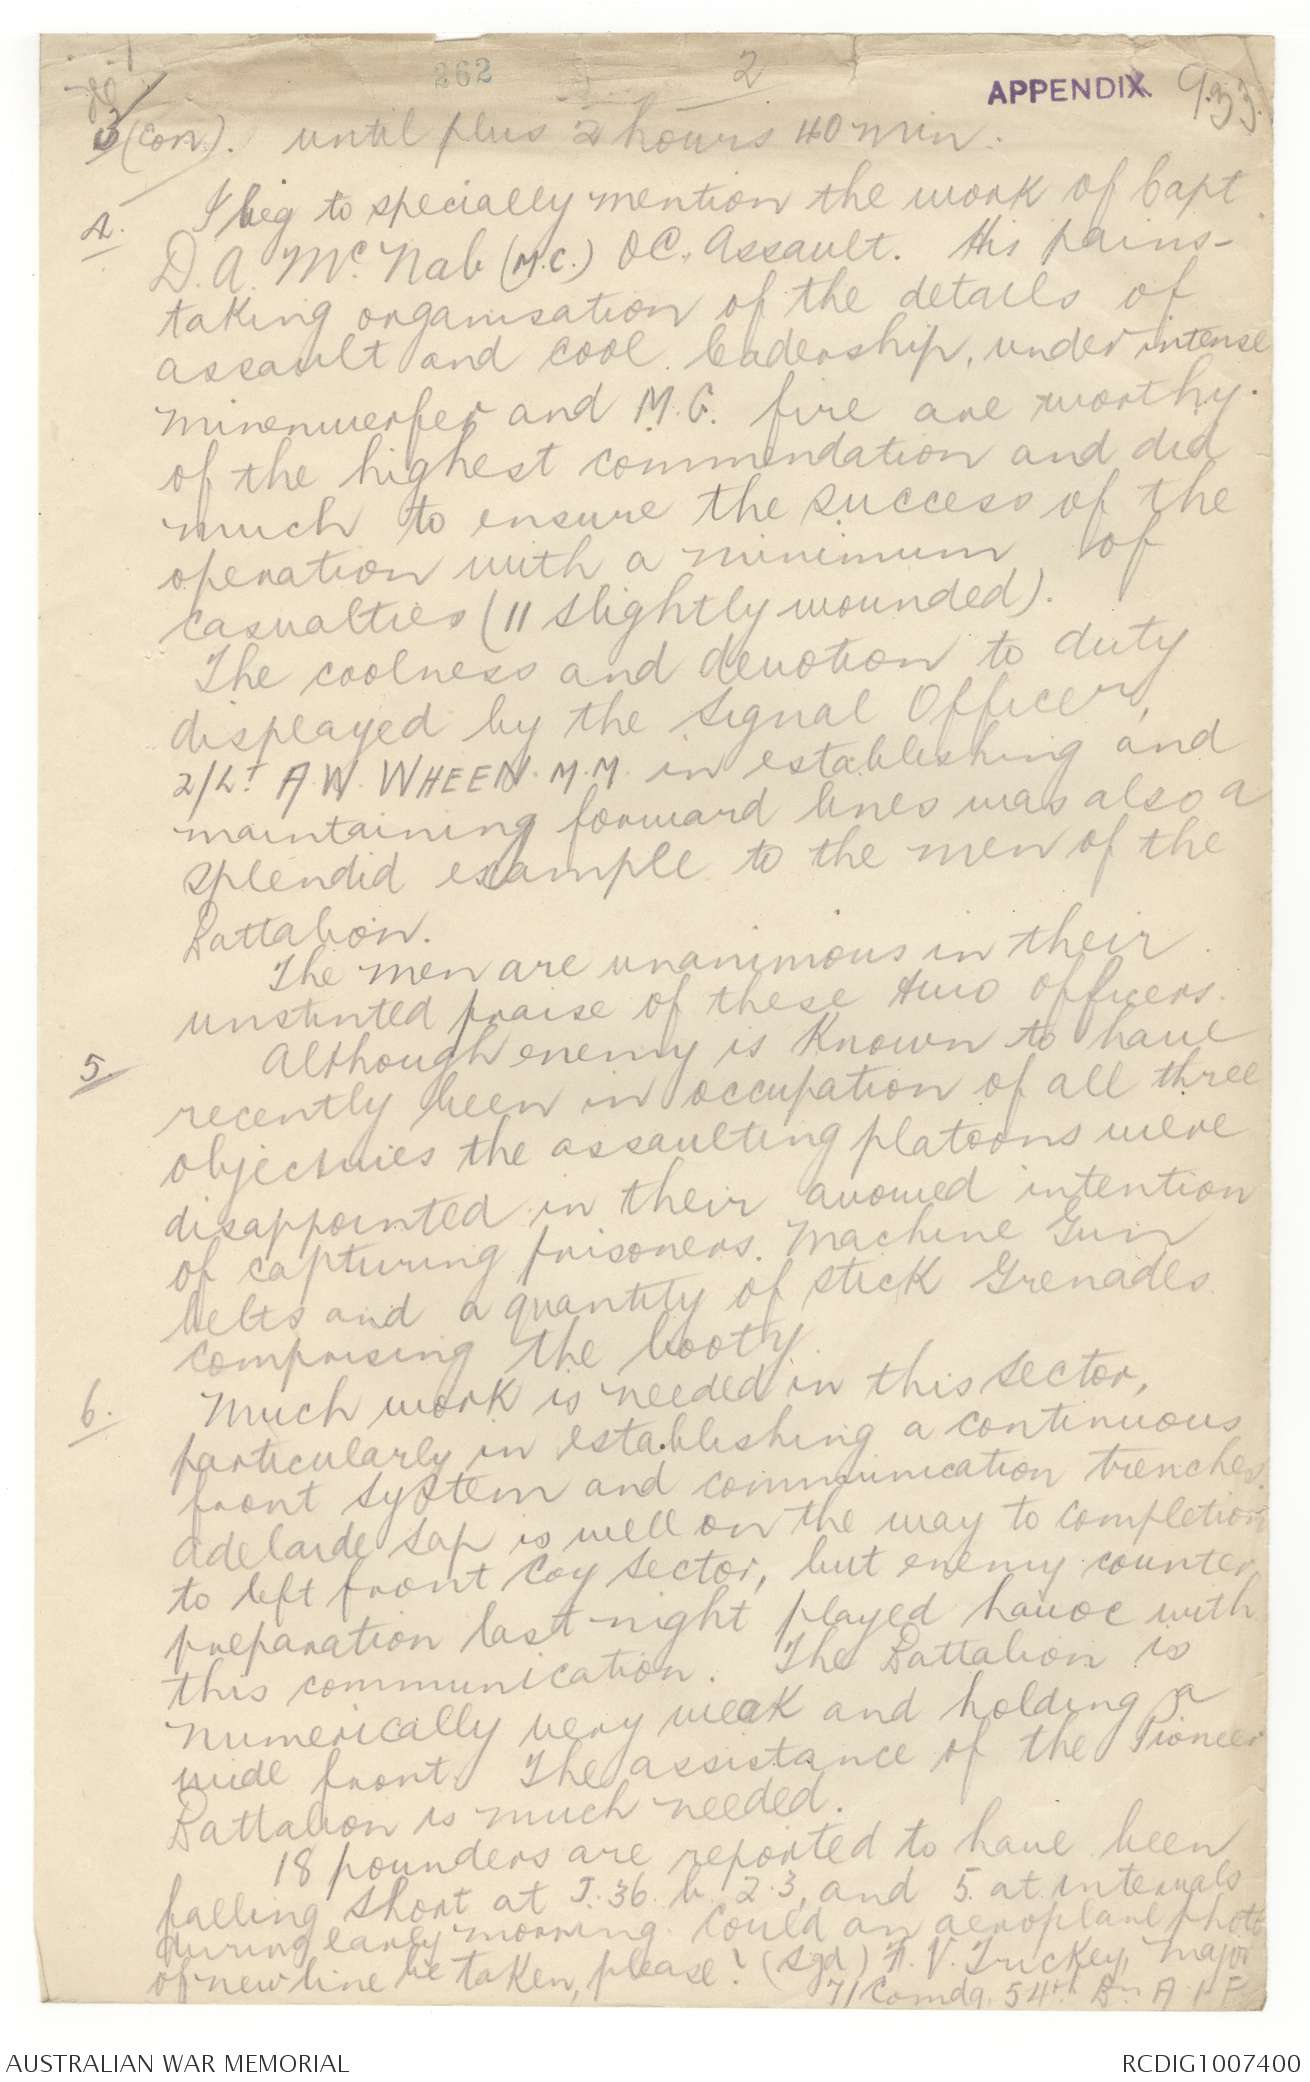 262
2
APPENDIX 9.33.
3 (con). until plus 2 hours 40 min.
4. I beg to specially mention the work of Capt
D. A. Mc Nab (M.C.) OC. Assault. His pains-
taking organisation of the details of
assault and cool leadership, under intense
minenwerfer and M.G. fire are worthy
of the highest commendation and did
much to ensure the success of the
operation with a minimum of
casualties (11 slightly wounded).
The coolness and devotion to duty
displayed by the Signal Officer,
2/Lt A. W. WHEEN. M.M. in establishing and
maintaining forward lines was also a
splendid example to the men of the
Battalion.
The men are unanimous in their
unstinted praise of these two officers.
5 Although enemy is known to have
recently been in occupation of all three
objectives the assaulting platoons were
disappointed in their avowed intention
of capturing prisoners. Machine Gun
belts and a quantity of stick Grenades
comprising the booty.
6. Much work is needed in this sector,
particularly in establishing a continuous
front system and communication trenches.
Adelaide Sap is well on the way to completion
to left front Coy sector, but enemy counter
preparation last night played havoc with
this communication. The Battalion is
numerically very weak and holding a
wide front. The assistance of the Pioneer
Battalion is much needed.
18 pounders are reported to have been
falling short at J.36. b. 2.3, and 5. at intervals
during early morning. Could an aeroplane photo
of new line be taken, please? (Sgd) F. V. Truckey, Major
T/Comdg. 54th Bn A I F
AUSTRALIAN WAR MEMORIAL
RCDIG1007400